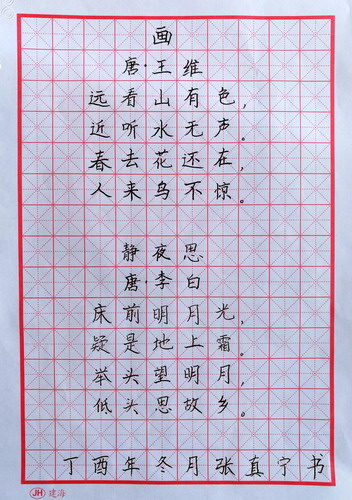 画
唐·王维
远看山有色,
近听水无声。
春去花还在,
人来鸟不惊。
静夜思
唐·李白
床前明月光,
疑是地上霜。
举头望明月,
低头思故乡。
丁酉年冬月张真宁书
JH 建海